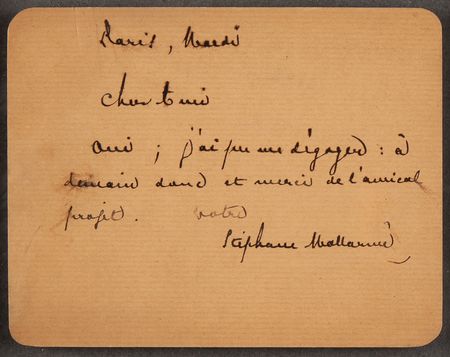 Paris, Mardi
Cher ami
Oui ; j'ai pu me dégager : à
demain donc et merci de l'amical
projet. Votre
Stéphane Mallarmé